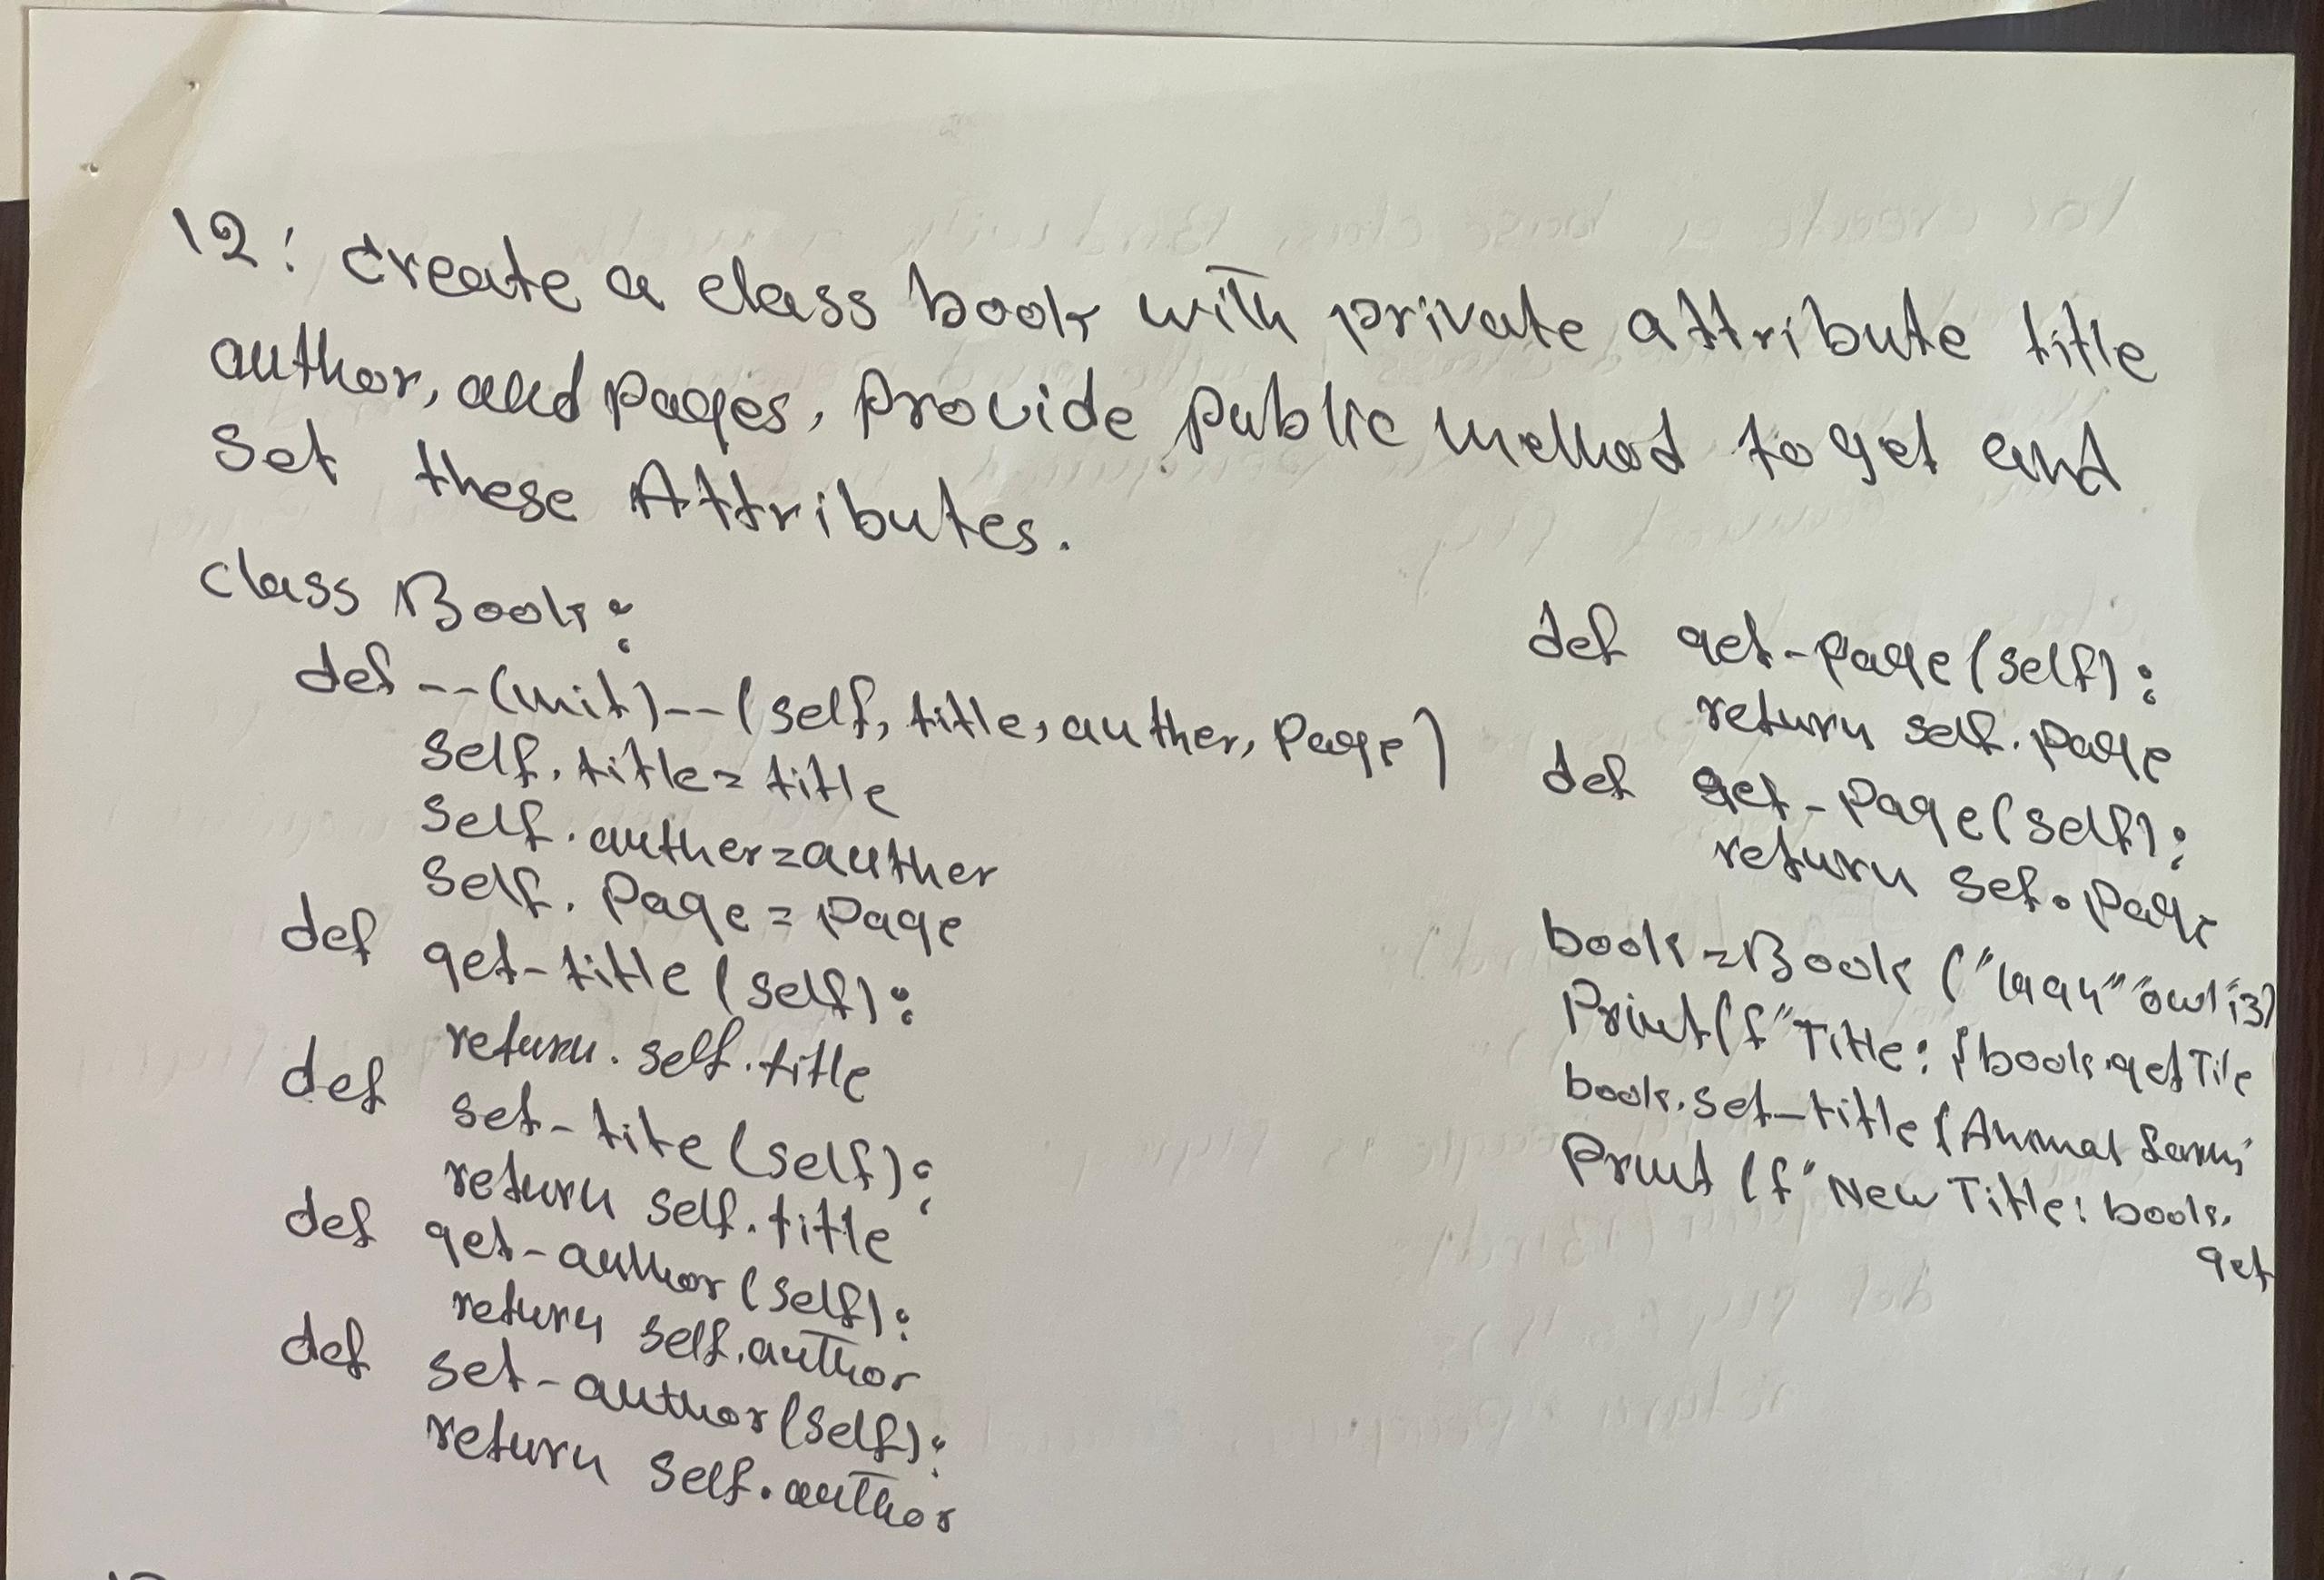 12: create a class book with private attribute title
author, and pages, provide public method to get and
set these Attributes.
class Book:
def --(init)--(self, title, auther, page)
self.title=title
self.auther=auther
self.page=page
def get-title(self):
return.self.title
def set-tite(self):
return self.title
def get-author(self):
return self.author
def set-author(self):
return self.author
def get-page(self):
return self.page
def get-page(self):
return sef.page
book=Book("1994"
Print(f"Title:{book.getTile
book.set-title(Animal farm
Print(f"New Title: book.
get